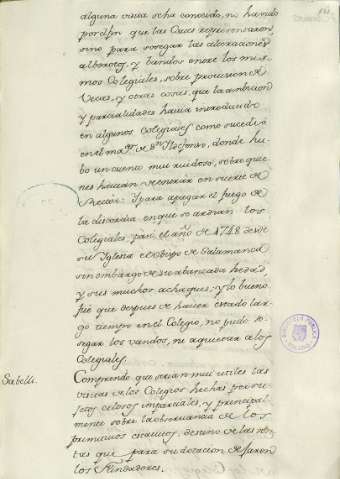 alguna visita seha conocido, no hando
por dfin que las Quas nopusieronsen,
sino para sosegar las alteraciones
alborotos, y bandos entre los mis
mos Colegiales, sobre provision de
Vecas, y otras cosas, que la ambicion
y parcialidades havia introducido
en algunos colegiales como sucedió
en el maior de Sn Ildefonso, donde hu
bo un cuento mui ruidoso, sobre quie
nes havian de entrar en suerte de
Rector: Ypara apagar el fuego de
la discordia en que se ardian los
Colegiales, pasó el año de 1748 desde
su Yglesia el obispo de Salamanca
sin embargo de su abanzada hedad,
y sus muchos achaques, y lo bueno
fue que despues de haver estado lar
go tiempo en el Colegio, no pudo so
segar los vandos, ni aquietar alos
Colegiales.
Sabelli.
Comprendo que serian mui utiles las
visitas alos Colegios hechas por su
getos celosos imparciales, y principal
mente sobre la observancia de los
primitivos estatutos, destino de las ren
tas que para su dotacion dejaron
los Fundadores.